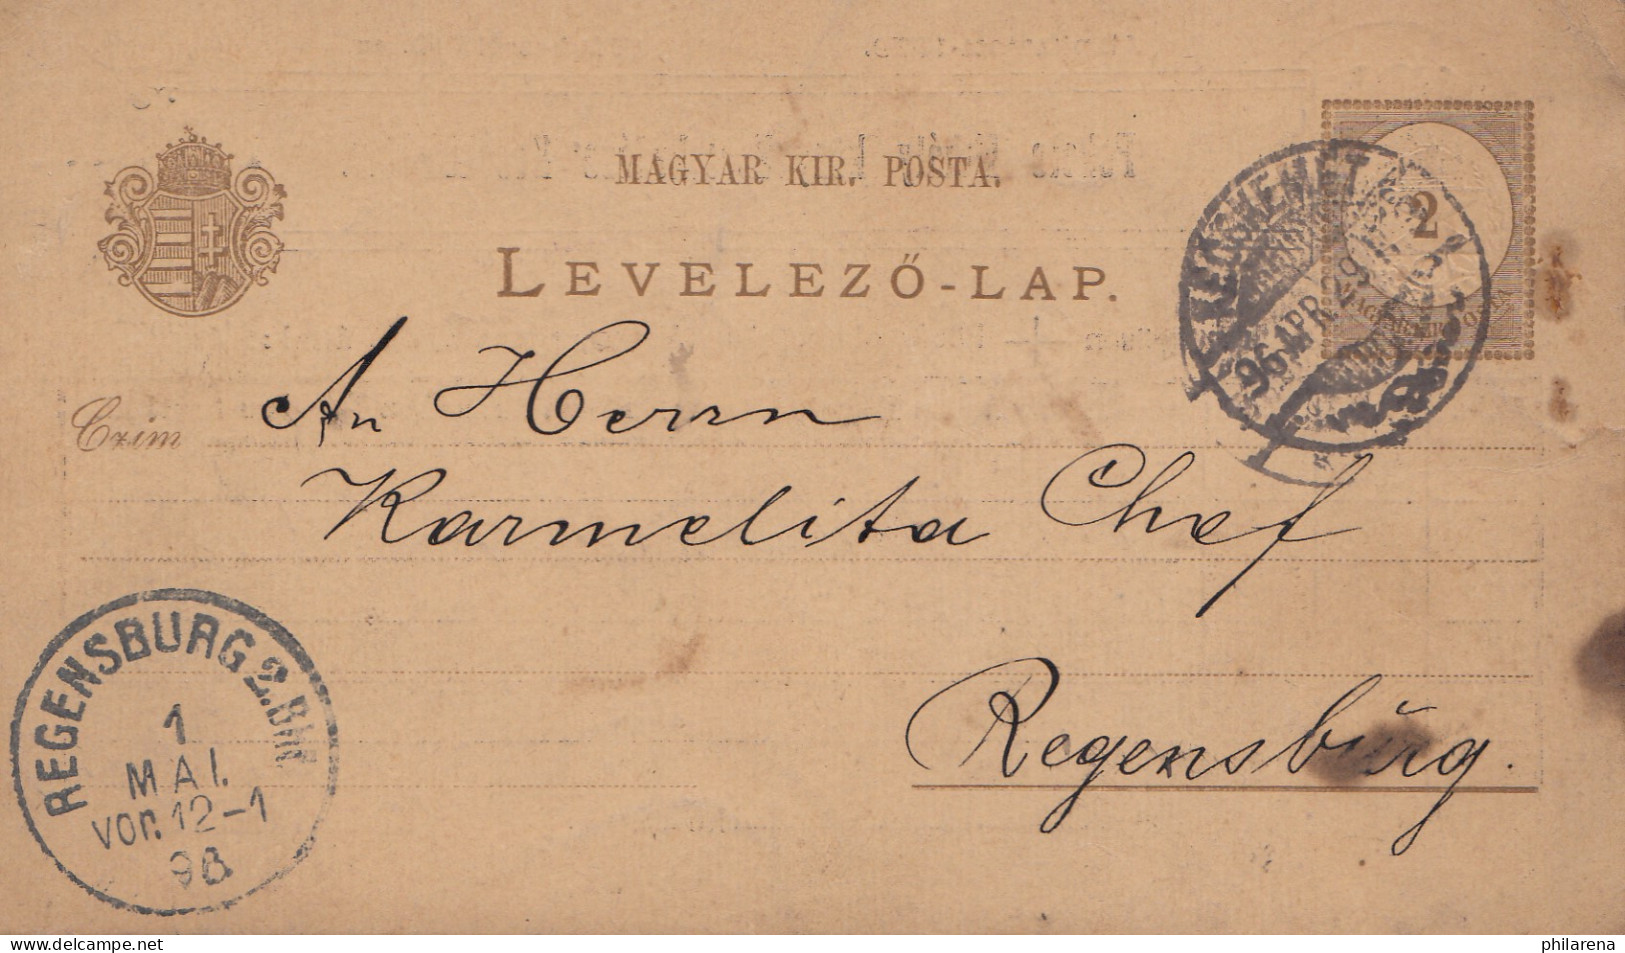 MAGYAR KIR. POSTA.
LEVELEZŐ-LAP.
2
KECSKEMÉT
96 APR. 29
Czim
An Herrn
Karmelita Chef
Regensburg.
REGENSBURG 2. BHf.
1
MAI.
vor. 12-1
96
© the-best-of-philately
philarena